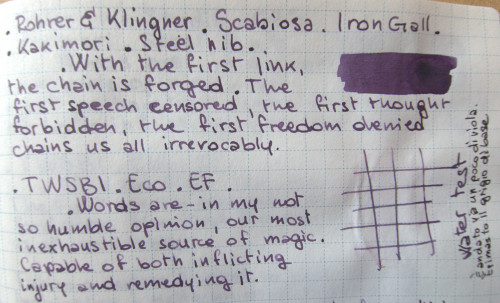 . Rohrer & Klingner . Scabiosa . Iron Gall .
. Kakimori . Steel nib .
. With the first link,
the chain is forged . The
first speech censored, the first thought
forbidden, the first freedom denied
chains us all irrevocably.
. TWSBI . Eco . EF .
. Words are - in my not
so humble opinion, our most
inexhaustible source of magic.
Capable of both inflicting
injury and remedying it.
Water test
È andato via un poco di viola.
È rimasto il grigio di base